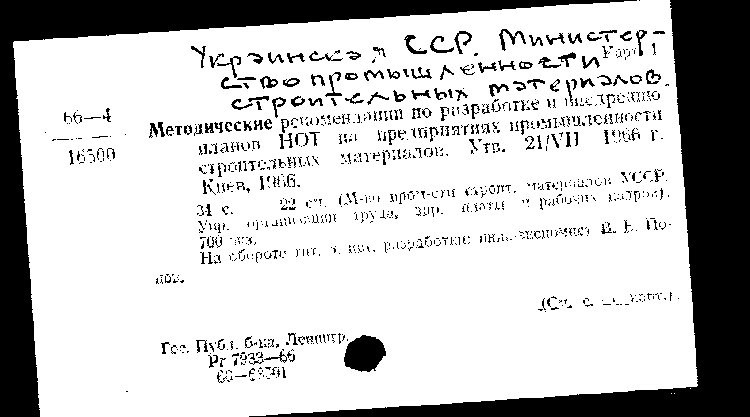 Украинская ССР. Министер-
ство промышленности
Карт. 1
строительных материалов.
66—4
16500
Методические рекомендации по разработке и внедрению
планов НОТ на предприятиях промышленности
строительных материалов. Утв. 21/VII 1966 г.
Киев, 1966.
31 с. 22 см. (М-во пром-сти строит. материалов УССР.
Упр. организации труда, зар. платы и рабочих кадров).
700 экз.
На обороте тит. л. авт. разработки: инж.-экономист В. Е. По-
пов.
(См. с.
Гос. Публ. б-ка, Ленингр.
Рг 7933—66